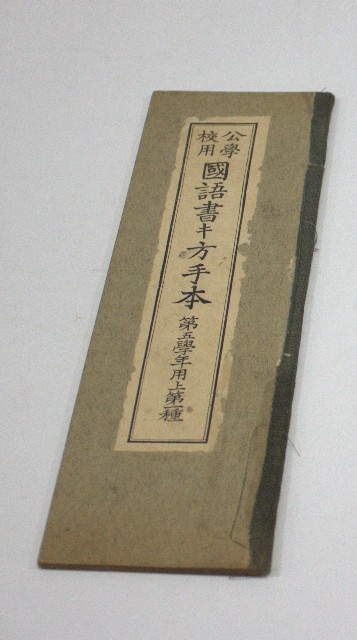 公學校用
國語書キ方手本
第五學年用上第一種